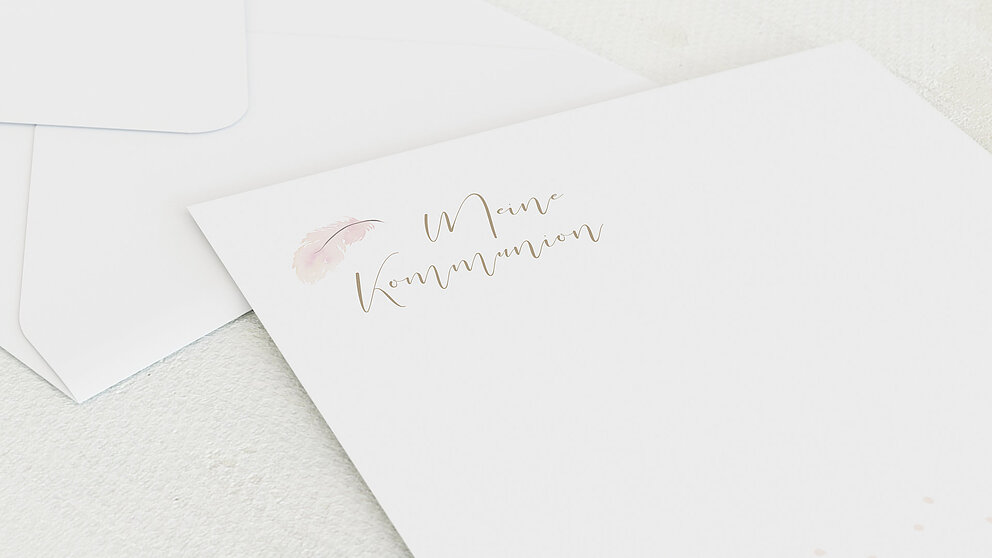 Meine
Kommunion